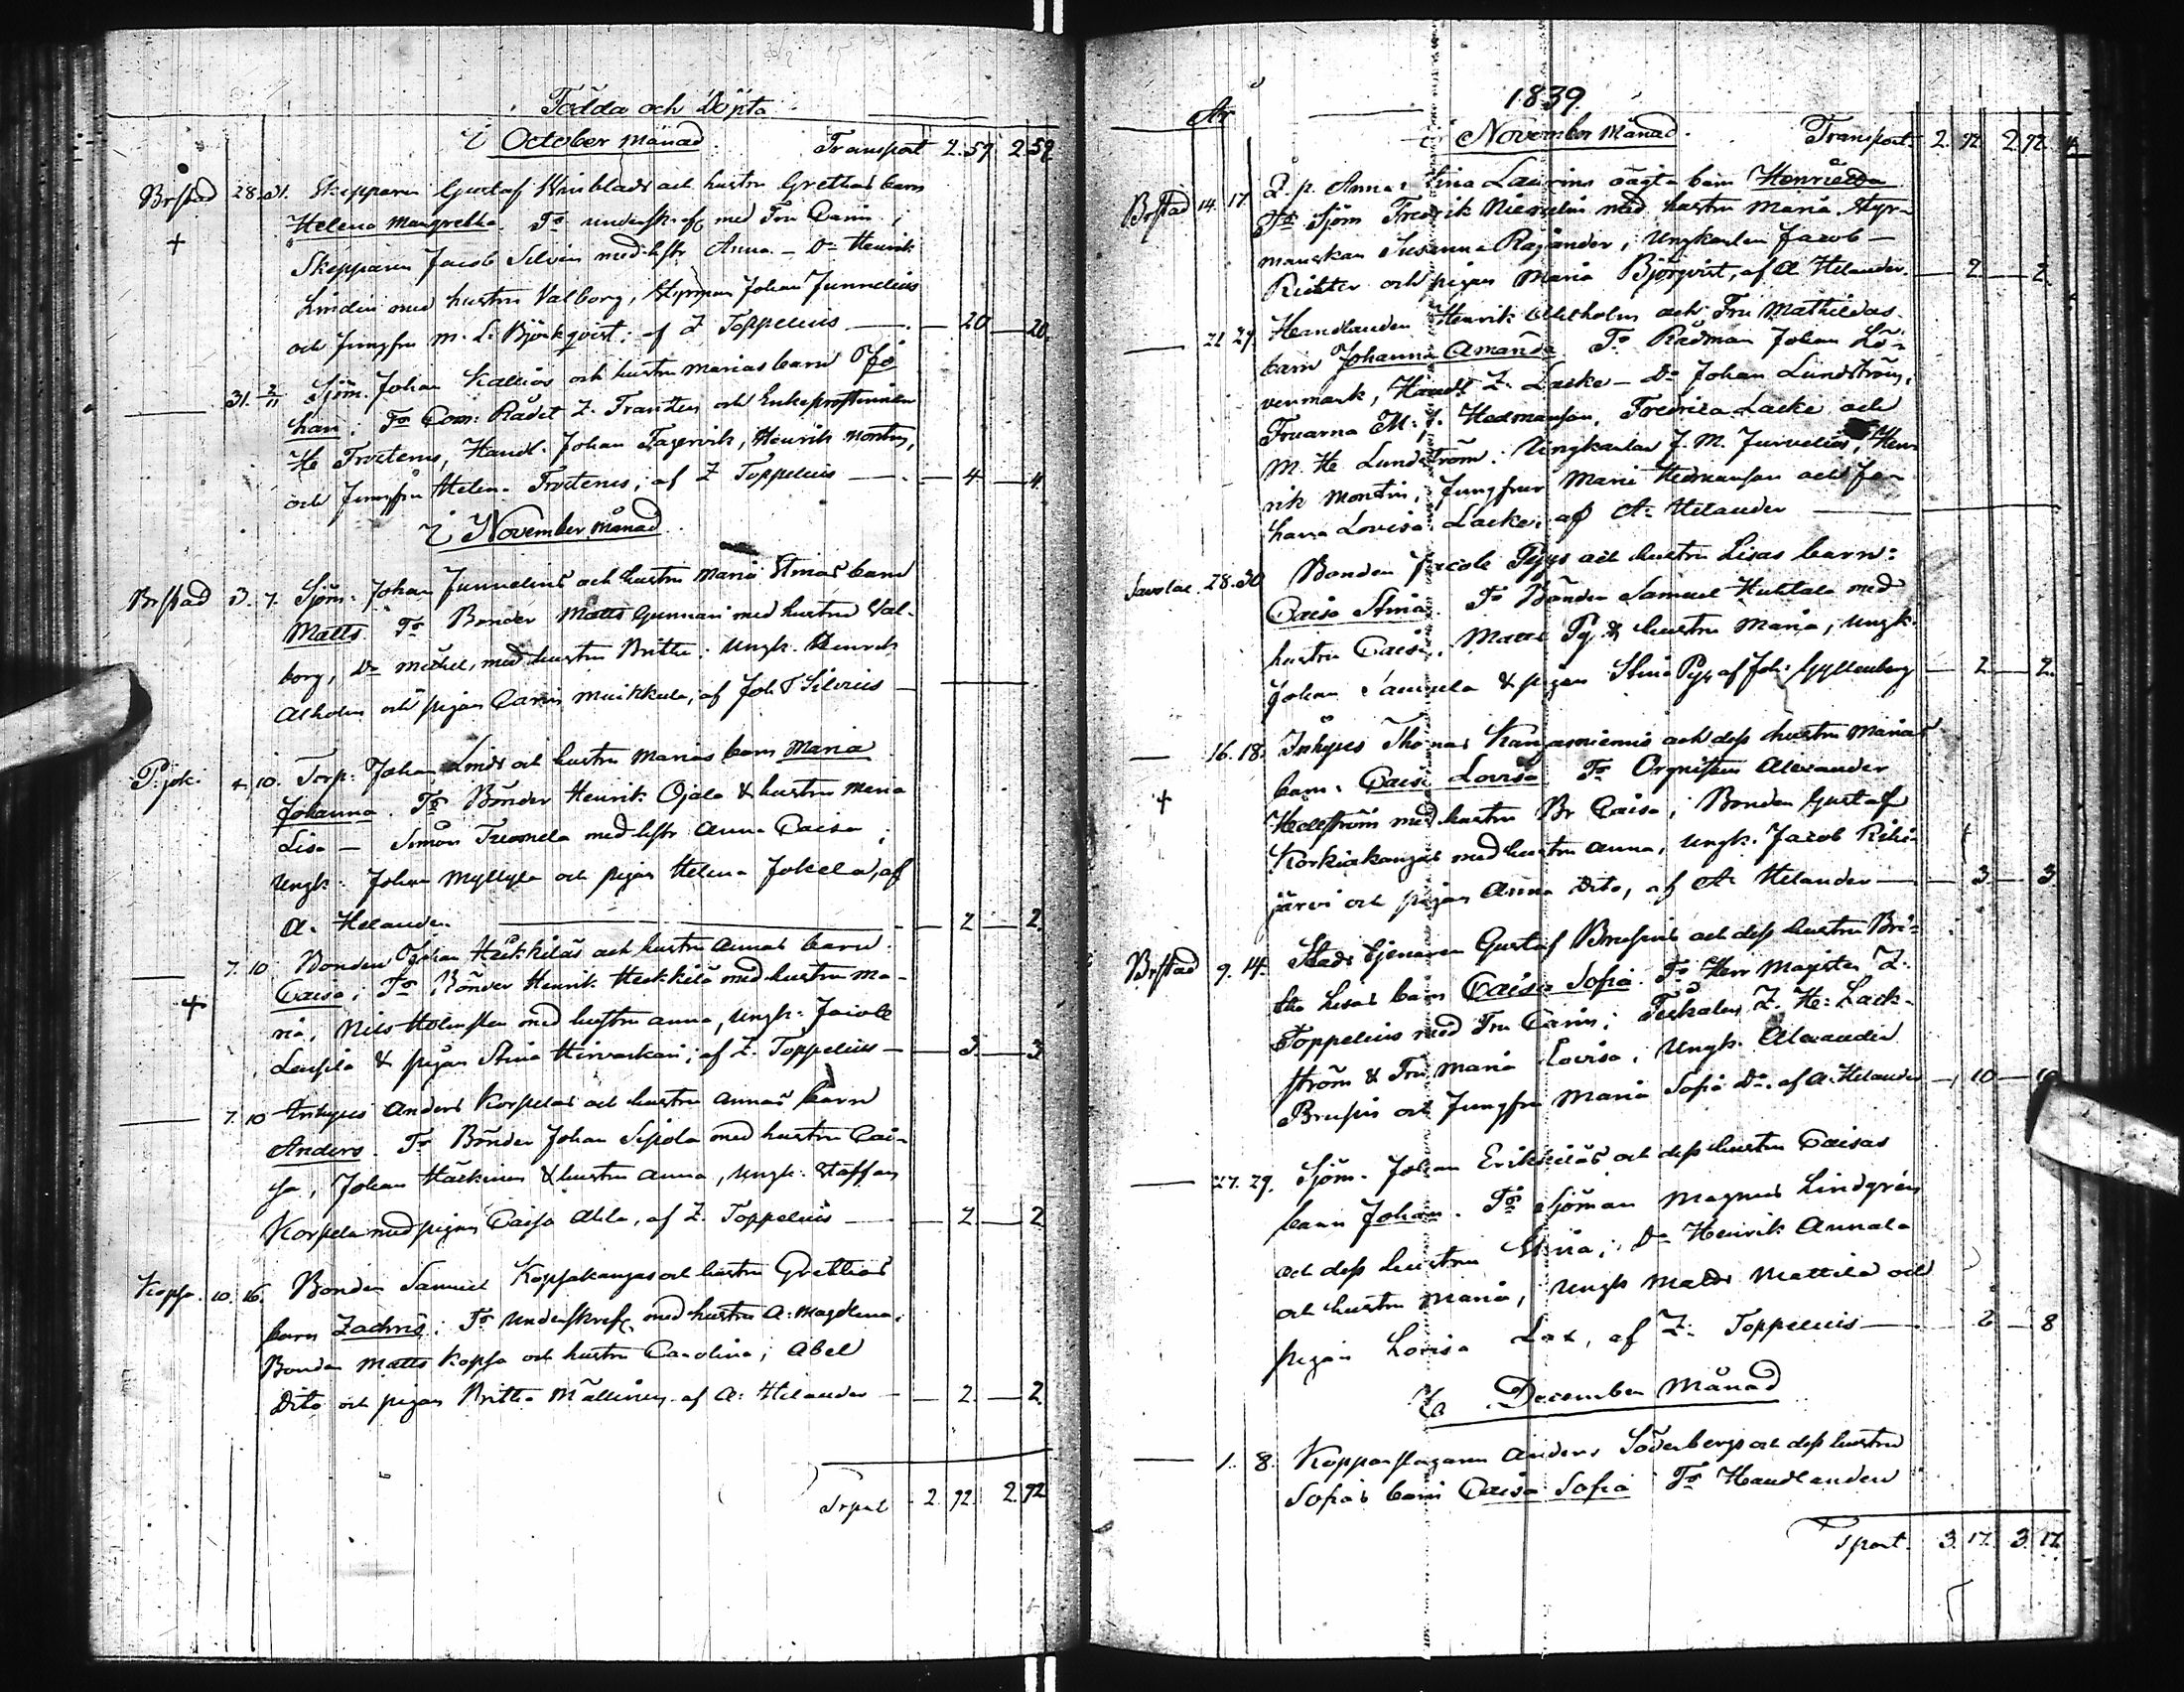 Födda och Döpta
i October månad. Transport 2.59 2.59
Brstad 28. 31. Skepparen Gustaf Winblads och hustru Grethas barn
+ Helena Margretha. Fr underskref. med Fru Carin;
Skepparen Jacob Silvin med hstr Anna - Do Henrik
Lindin med hustru Valborg, Styrman Johan Junnelius
och Jungfru M. L. Björkqvist; af Z Toppelius — 20 — 20.
— 31. 2/11 Sjöm. Johan Kallios och hustru Marias barn Jo
han; Fr Com: Rådet Z. Franzen och Enkeprostinnan
H Frosterus, Handl. Johan Fagervik, Henrik Montin,
och Jungfru Helena Frosterus; af Z Toppelius — 4 — 4.
i November månad
Brstad 3. 7. Sjöm. Johan Junnelius och hustru Maria Stinas barn
Matts. Fr Bönder Matts Gunnari med hustru Val-
borg, Do Michel, med hustru Britha; Ungk. Henrik
Alholm och pigan Carin Muikkula, af Joh S Silvius —
P:joki 4. 10. Torp: Johan Linds och hustru Marias barn Maria
Johanna. Fr Bönder Henrik Ojala & hustru Maria
Lisa — Simon Tuomela med hstr Anna Caisa;
Ungk: Johan Myllylä och pigan Helena Jokela, af
A. Helander — 2 — 2.
— 7. 10 Bonden Johan Heikkiläs och hustru Annas barn
+ Caisa; Fr Bönder Henrik Heikkilä med hustru Ma-
ria, Nils Holmsten med hustru Anna, Ungk: Jacob
& pigan Stina Hirvaskari; af Z. Toppelius — 3 — 3
— 7. 10 Inhyses Anders Korpelas och hustru Annas barn
Anders. Fr Bönder Johan Sipola med hustru Cai-
sa, Johan Häckinen & hustru Anna, Ungk: Staffan
Korpela med pigan Caisa Ahla, af Z. Toppelius — 2 — 2
Kopsa. 10. 16. Bonden Samuel Kopsakangas och hustru Grethas
barn Zachris; Fr Underskref. med hustru A. Magdlena;
Bonden Matts Kopsa och hustru Carolina; Abel
Dito och pigan Britha Mällinen af A: Helander — 2. — 2.
Trpt 2. 92. 2. 92
År 1839.
i November månad. Transport. 2. 92. 2. 92.
Brstad 14. 17. Q. p. Anna Stina Laurins oägta barn Henricka
Fr Sjöm Fredrik Niemelin med hustru Maria, Styr-
manskan Susanna Rajander, Ungkarlen Jacob —
Richter och pigan Maria Björqvist, af A Helander. — 2 — 2.
— 21 29 Handlanden Henrik och Fru Mathildas
barn Johanna Amanda Fr Rådman Johan Lö-
venmark, Handl. Z. Lacke — Do Johan Lundström,
Fruarna M: J. Hedmanson, Fredrica Lacke och
M. H. Lundström: Ungkarlar J. M. Jurvelius, Hen-
rik Montin, Jungfrur Marie Hedmanson och Jo-
hana Lovisa Lacke. af A: Helander —
Savolac. 28. 30 Bonden Jacob Pyys och hustru Lisas barn:
Caisa Stina. Fr Bönder Samuel Huhtala med
hustru Caisa, Matts Py & hustru Maria, Ungk.
Johan & pigan Stina Pyy af Joh: Gyllenberg — 2 — 2.
— 16. 18. Inhyses Thomas Kangasniemis och dess hustru Marias
+ barn. Caisa Lovisa. Fr Orgnisten Alexander
Hedström med hustru Br Caisa; Bonden Gustaf
Korkiakangas med hustru Anna, Ungk. Jacob Kihi-
järvi och pigan Anna Dito, af A: Helander — 3. — 3
Brstad 9. 14. Stads tjenaren Gustaf Brusins och dess hustru Bri-
tha Lisas barn Caisa Sofia. Fr Herr Magister Z.
Toppelius med Fru Carin; Fiskalen Z. H: Lack-
ström & Fru Maria Lovisa; Ungk. Alexander
Brusin och Jungfru Maria Sofia Do. af A. Helander — 10 — 10
— 27. 29. Sjöm. Johan Erikssiläs och dess hustru Caisas
barn Johan. Fr Sjöman Magnus Lindgrén
och dess hustru Stina; Do Henrik Annala
och hustru Maria; Ungk Matts Mattila och
pigan Lovisa Lax, af Z. Toppelius — 2 — 8
i December Månad
— 1. 8. Kopparslagaren Anders Söderbergs och dess hustru
Sofias barn Caisa Sofia Fr Handlanden
Tsport. 3. 17. 3. 17.